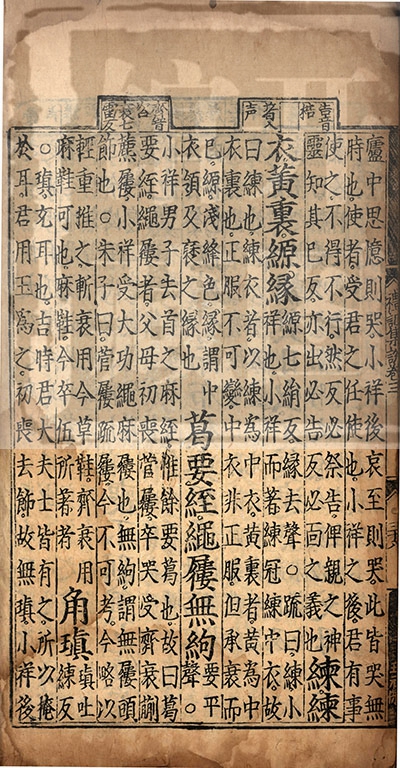 廬中思憶則哭小祥後哀至則哭此皆哭無
時也使者受君之任使也小祥之後君有事
使之不得不行然反必祭告俾親之神
靈知其已反亦出必告反必面之義也
練練
衣黃裏縓緣
縓七絹反緣去聲○疏曰練小
祥也小祥而著練冠練中衣故
曰練也練衣者以練為中衣黃裏者黃為中
衣裏也正服不可變中衣非正服但承衰而
已縓淺絳色緣謂中
衣領及褎之緣也
葛要絰繩屨無絇
要平
聲○
小祥男子去首之麻絰惟餘要葛也故曰葛
要絰繩屨者父母初喪菅屨卒哭受齊衰蒯
藨屨小祥受大功繩麻屨也無絇謂無屨頭
飾也○朱子曰菅屨疏屨今不可考今略以
輕重推之斬衰用今草鞋齊衰用
麻鞋可也麻鞋今卒伍所著者
角瑱
瑱吐
練反
○瑱充耳也古時君大夫士皆有之所以掩
於耳君用玉為之初喪去飾故無瑱小祥後
齊音
咨
衰七
雷反